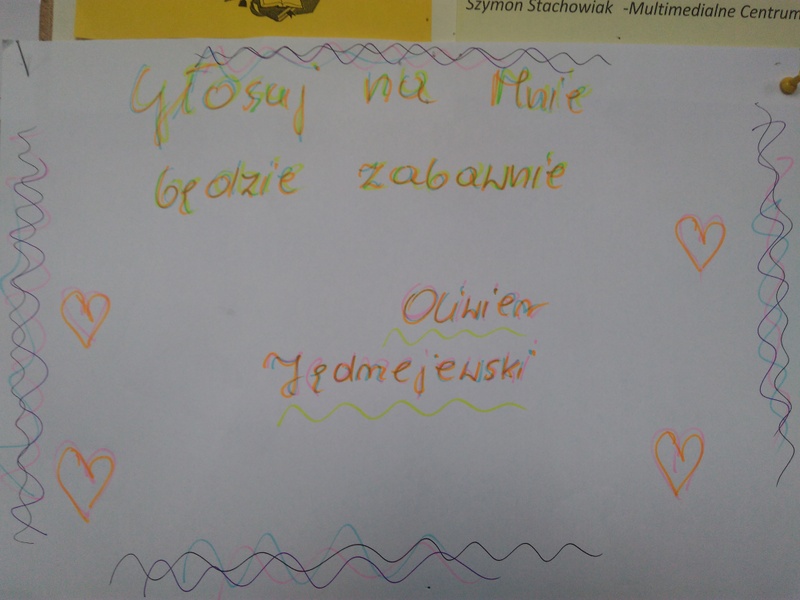 Szymon Stachowiak -Multimedialne Centrum
Głosuj na Mnie
będzie zabawnie
Oliwier
Jędrzejewski